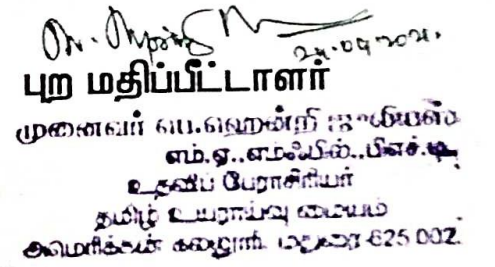 24.09.2021.
புற மதிப்பீட்டாளர்
முனைவர் பெ.ஹென்றி ஜூலியஸ்
எம்.ஏ.,எம்ஃபில்.,பிஎச்.டி
உதவிப் பேராசிரியர்
தமிழ் உயராய்வு மையம்
அமெரிக்கன் கல்லூரி மதுரை-625 002.